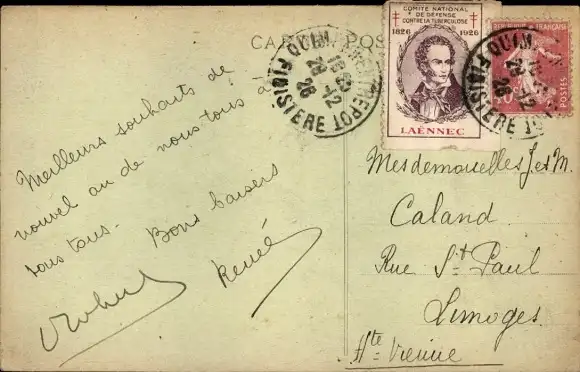 CARTE POSTALE
COMITÉ NATIONAL
DE DÉFENSE
CONTRE LA TUBERCULOSE
1826 1926
LAËNNEC
RÉPUBLIQUE FRANÇAISE
POSTES
QUIMPER ENTREPOT
FINISTERE
29 -12
26
QUIMPER
FINISTERE
29 -12
26
Meilleurs souhaits de
nouvel an de nous tous à
vous tous. Bons baisers
Renée
Mesdemoiselles J. et M.
Caland
Rue St Paul
Limoges
Hte Vienne